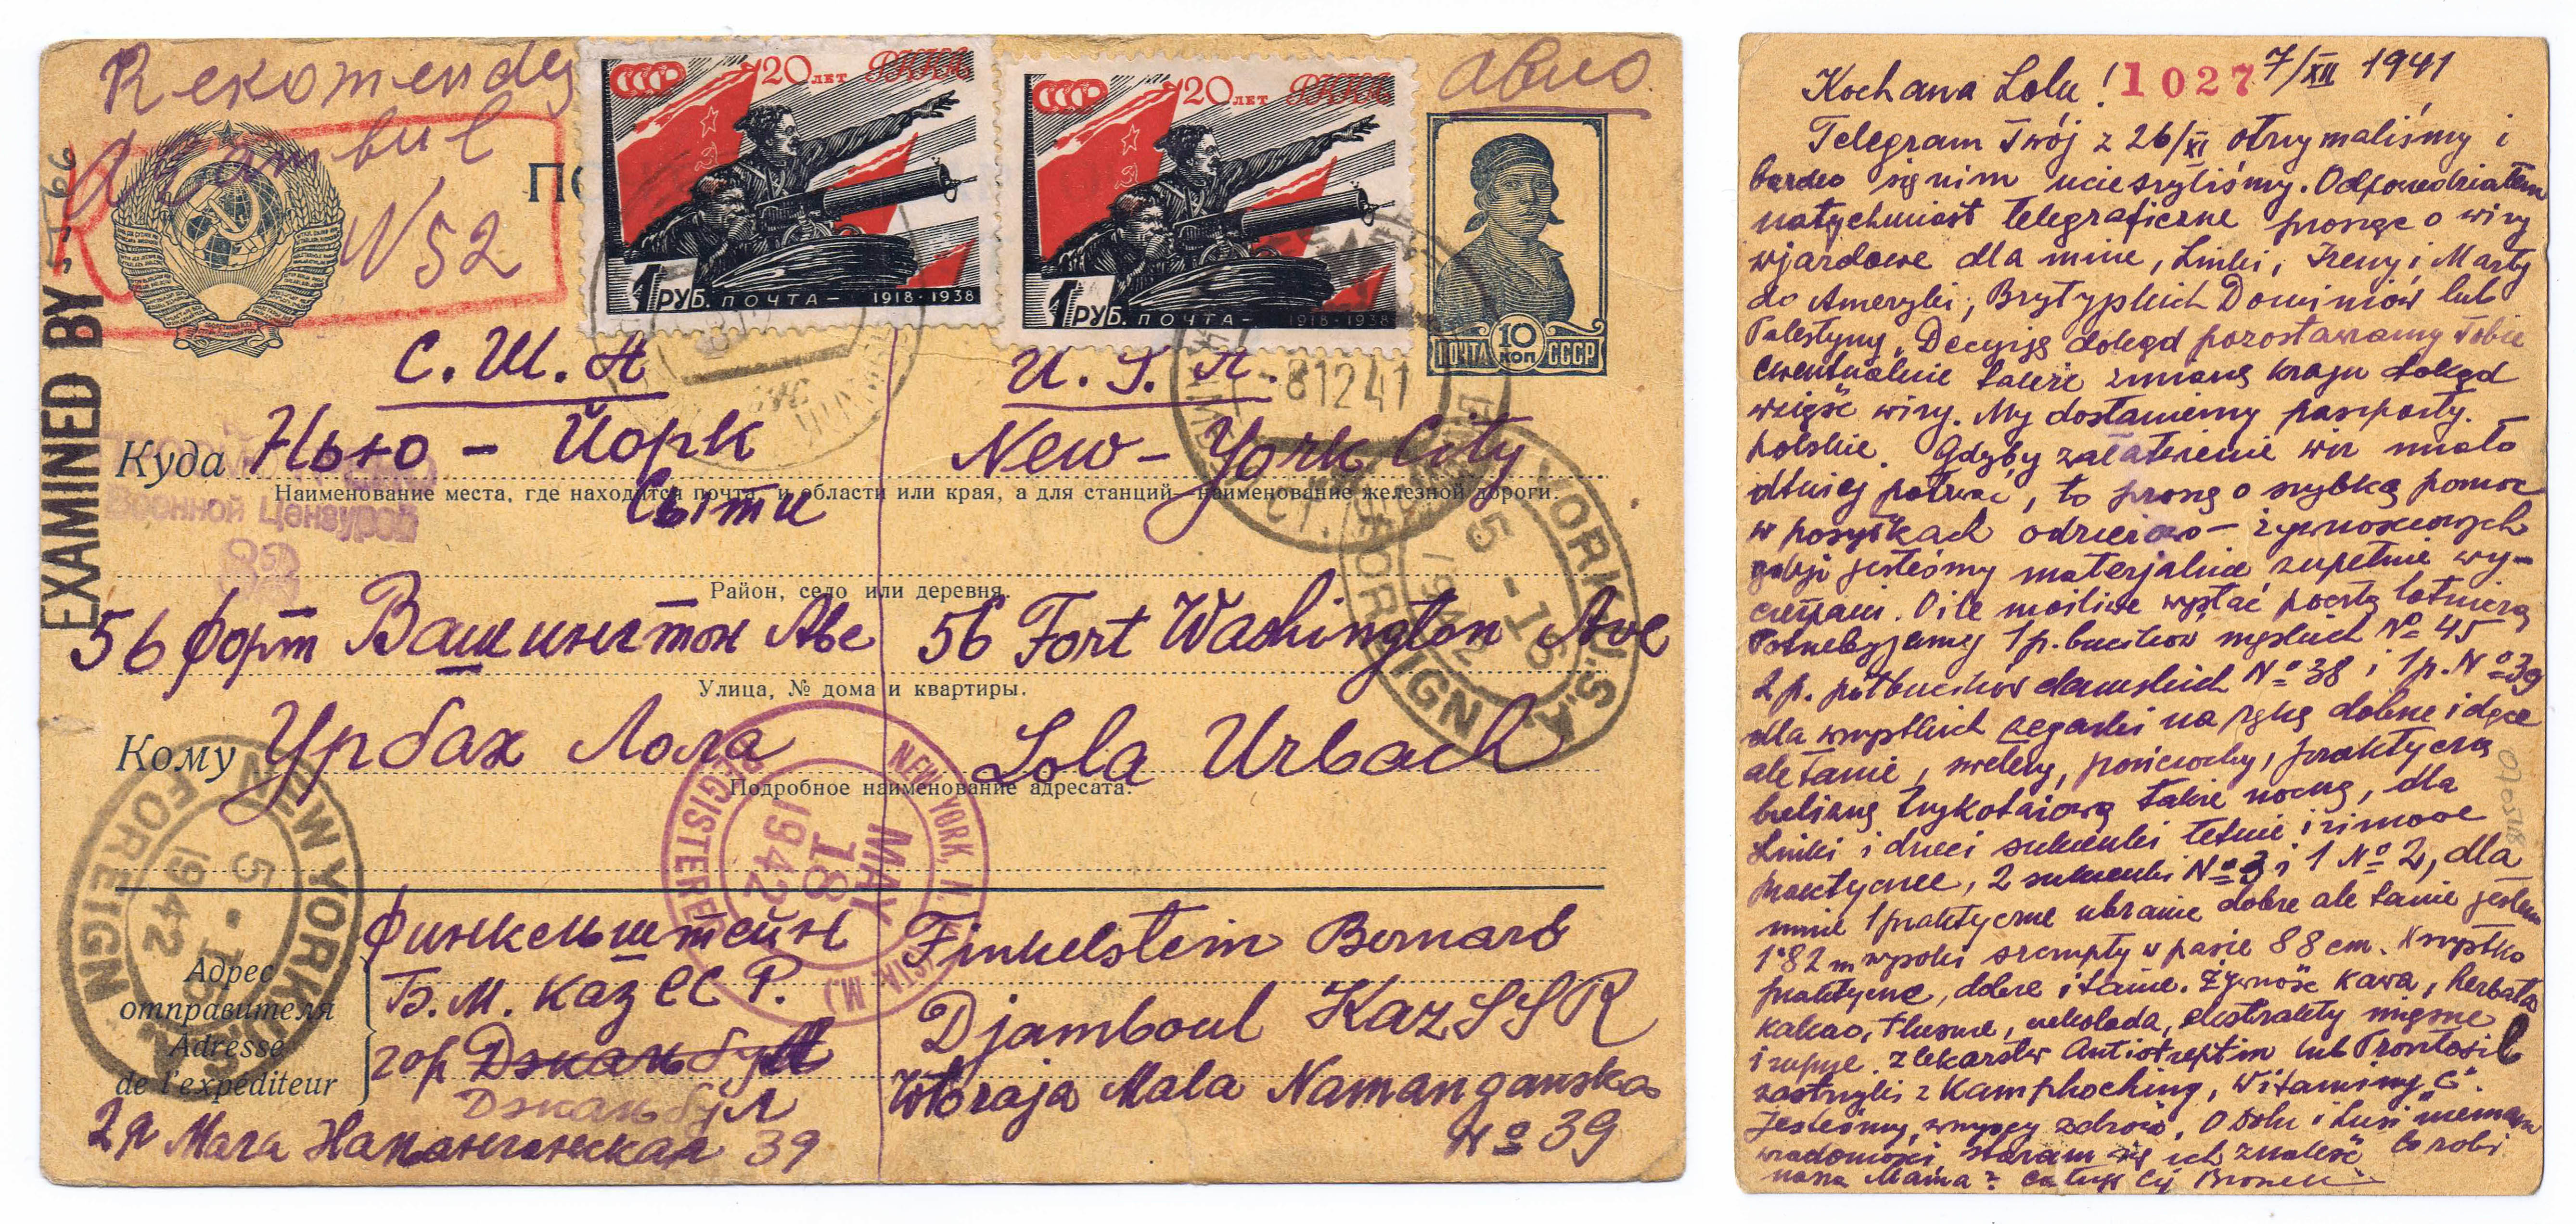 Rекоmendej
авио
Dzambul
N 52
ПО
СССР 20 ЛЕТ РККА
1 РУБ. ПОЧТА 1918-1938
СССР 20 ЛЕТ РККА
1 РУБ. ПОЧТА 1918-1938
ПОЧТА 10 КОП СССР
EXAMINED BY 5166
С.Ш.А
U.S.A.
-81241
Куда Нью-Йорк
New-York City
Наименование места, где находится почта, и области или края, а для станций—наименование железной дороги.
Сыти
Военной Цензурой
Район, село или деревня.
56 форт Вашингтон Аве
56 Fort Washington Ave
Улица, № дома и квартиры.
Кому Урбах Лола
Lola Urbach
Подробное наименование адресата.
NEW YORK, N.Y. REGISTERED
MAY 18 1942
NEW YORK U.S.A. FOREIGN
5-16 1942
NEW YORK U.S.A. FOREIGN
1942
Адрес отправителя
Adresse de l'expéditeur
Финкельштейн
Б.М. КазССР.
гор Джамбул
Джамбул
2я Мала Наманганская 39
Finkelstein Bernard
Djamboul KazSSR
Wtoraja Mala Namanganska
No 39
Kochana Lolu! 1027 7/XII 1941
Telegram Twój z 26/XI otrzymaliśmy i
bardzo się nim ucieszyliśmy. Odpowiedziałem
natychmiast telegraficzne prosząc o wizy
wjazdowe dla mnie, Linki, Ireny i Marty
do Ameryki, Brytyjskich Dominiów lub
Palestyny. Decyzję dokąd pozostawiamy Tobie
ewentualnie także zmianę kraju dokąd
wziąść wizy. My dostaniemy paszporty
polskie. Gdyby załatwienie wiz miało
dłużej potrwać, to proszę o szybką pomoc
w posyłkach odzieżowo-żywnosciowych
gdyż jesteśmy materjalnie zupełnie wy-
czerpani. O ile możliwe wysłać pocztą lotniczą
Potrzebujemy 1 p. bucików męskich No 45
2 p. półbucików damskich No 38 i 1 p. No 39
dla wszystkich zegarki na rękę dobre idące
ale tanie, swetery, pończochy, praktyczną
bieliznę trykotażową także nocną, dla
Linki i dzieci sukienki letnie i zimowe
praktyczne, 2 sukienki No 3 i 1 No 2, dla
mnie 1 praktyczne ubranie dobre ale tanie jestem
1.82 m wysoki szczupły w pasie 88 cm. Wszystko
praktyczne, dobre i tanie. Żywność kawa, herbata
kakao, tłuszcze, czekolada, ekstrakty mięsne
i zupy. Z lekarstw Antistreptin lub Prontosil
zastrzyki z Kamphochiny, Witaminy "C".
Jesteśmy wszyscy zdrowi. O Dolu i Lusi niemam
wiadomości staram się ich znaleść Co robi
nasza Mama? Całuję Cię Bronek
070518